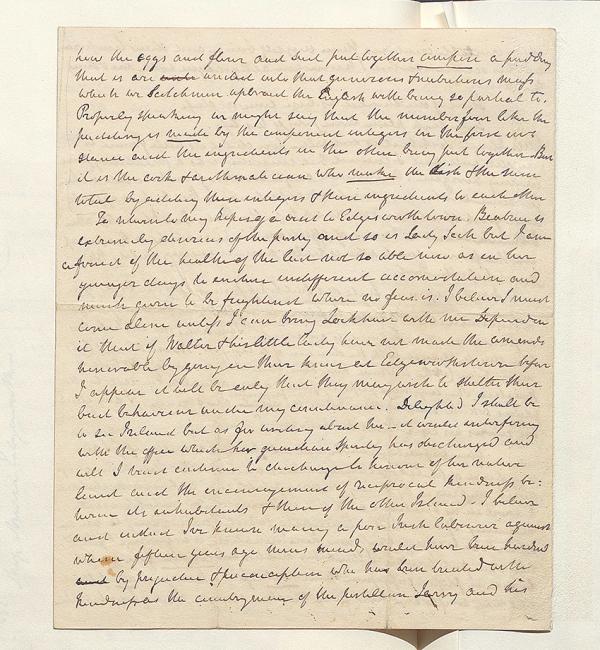 how the eggs and flour and suet put together compose a pudding
that is are united into that generous & nutritious mess
which we Scotchmen upbraid the English with being so partial to.
Properly speaking we might say that the number four like the
pudding is made by the component integers in the first in
stance and the ingredients in the other being put together But
it is the cook & arithmetician who make the dish & the sum
total by adding these integers & these ingredients to each other
To return to my hopes of a visit to Edgeworthtown. Beatrice is
extremely desirous of the party and so is Lady Scott but I am
afraid of the health of the last not so able now as in her
younger days to endure indifferent accomodation and
much given to be frightend where no fear is. I believe I must
come alone unless I can bring Lockhart with me Depend on
it that if Walter & his little lady have not made the amende
honorable by going on their knees at Edgeworthstown before
I appear it will be only that they may wish to shelter their
bad behaviour under my countenance. Delighted I shall be
to see Ireland but as for writing about it it would interfering
with the office which her guardian Spirit has discharged and
will I trust continue to discharge to honour of her native
land and the encouragement of reciprocal kindness be:
tween its inhabitants & those of the other Island. I believe
and indeed I've known many a poor Irish labourer against
whom fifteen years ago mens minds would have been hardend
and by prejudice & preconception who has been treated with
kindness as the countrymen of the postillion Larry and his